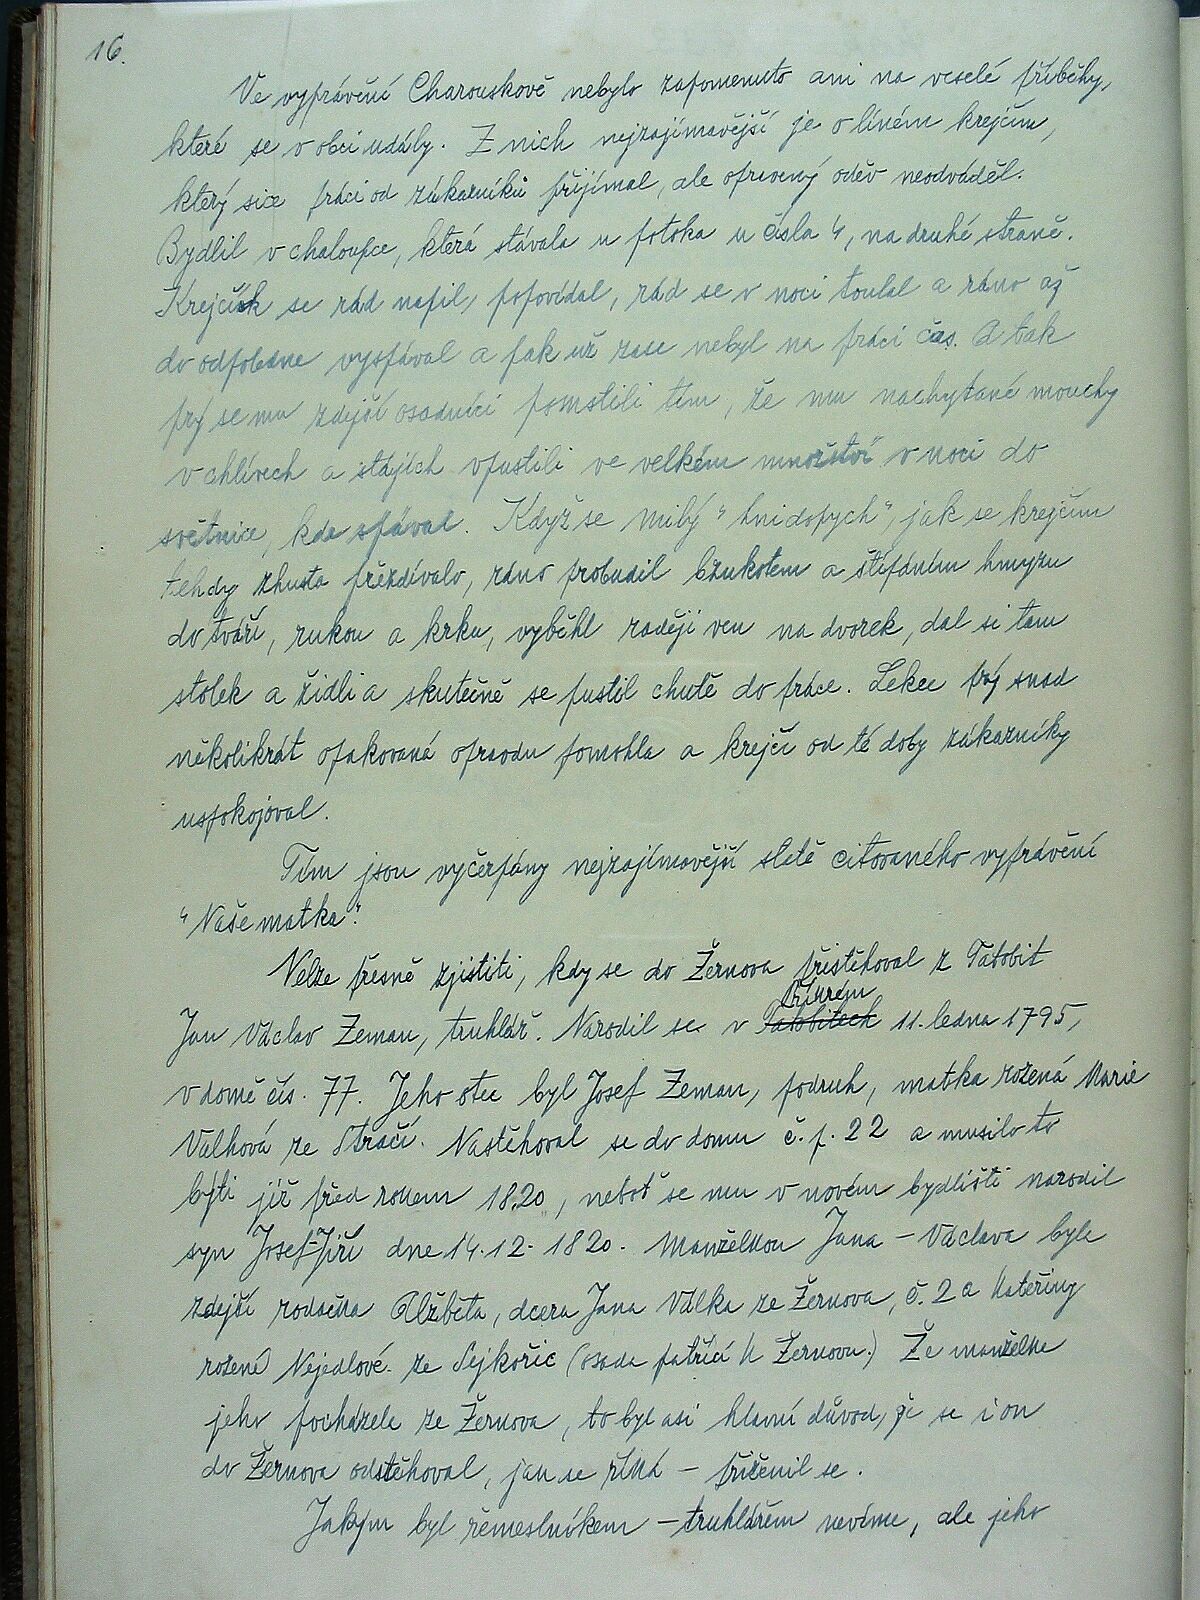 16.
Ve vyprávění Charouskově nebylo zapomenuto ani na veselé příběhy,
které se v obci udály. Z nich nejzajímavější je o líném krejčím,
který sice práci od zákazníků přijímal, ale opravený oděv neodváděl.
Bydlil v chaloupce, která stávala u potoka u čísla 4, na druhé straně.
Krejčík se rád napil, popovídal, rád se v noci toulal a ráno až
do odpoledne vyspával a pak už zase nebyl na práci čas. A tak
prý se mu zdejší osadníci pomstili tím, že mu nachytané mouchy
v chlívech a stájích vpustili ve velkém množství v noci do
světnice, kde spával. Když se milý "hnidopych", jak se krejčím
tehdy zhusta přezdívalo, ráno probudil bzukotem a štípáním hmyzu
do tváří, rukou a krku, vyběhl raději ven na dvorek, dal si tam
stolek a židli a skutečně se pustil chutě do práce. Lekce prý snad
několikrát opakovaná opravdu pomohla a krejčí od té doby zákazníky
uspokojoval.
Tím jsou vyčerpány nejzajímavější statě citovaného vyprávění
"Naše matka".
Nelze přesně zjistiti, kdy se do Žernova přistěhoval z Tatobit
Jan Václav Zeman, truhlář. Narodil se v Tatobitech Příkrém 11. ledna 1795,
v domě čís. 77. Jeho otec byl Josef Zeman, podruh, matka rožená Marie
Válková ze Stračí. Nastěhoval se do domu č.p. 22 a musilo to
býti již před rokem 1820, neboť se mu v novém bydlišti narodil
syn Josef-Jiří dne 14.12.1820. Manželkou Jana - Václava byla
zdejší rodačka Alžběta, dcera Jana Válka ze Žernova, č. 2 a Kateřiny
rožené Nejedlové ze Sejkořic (osada patřící k Žernovu.) Že manželka
jeho pocházela ze Žernova, to byl asi hlavní důvod, že se i on
do Žernova odstěhoval, jak se říká - přiženil se.
Jakým byl řemeslníkem - truhlářem nevíme, ale jeho